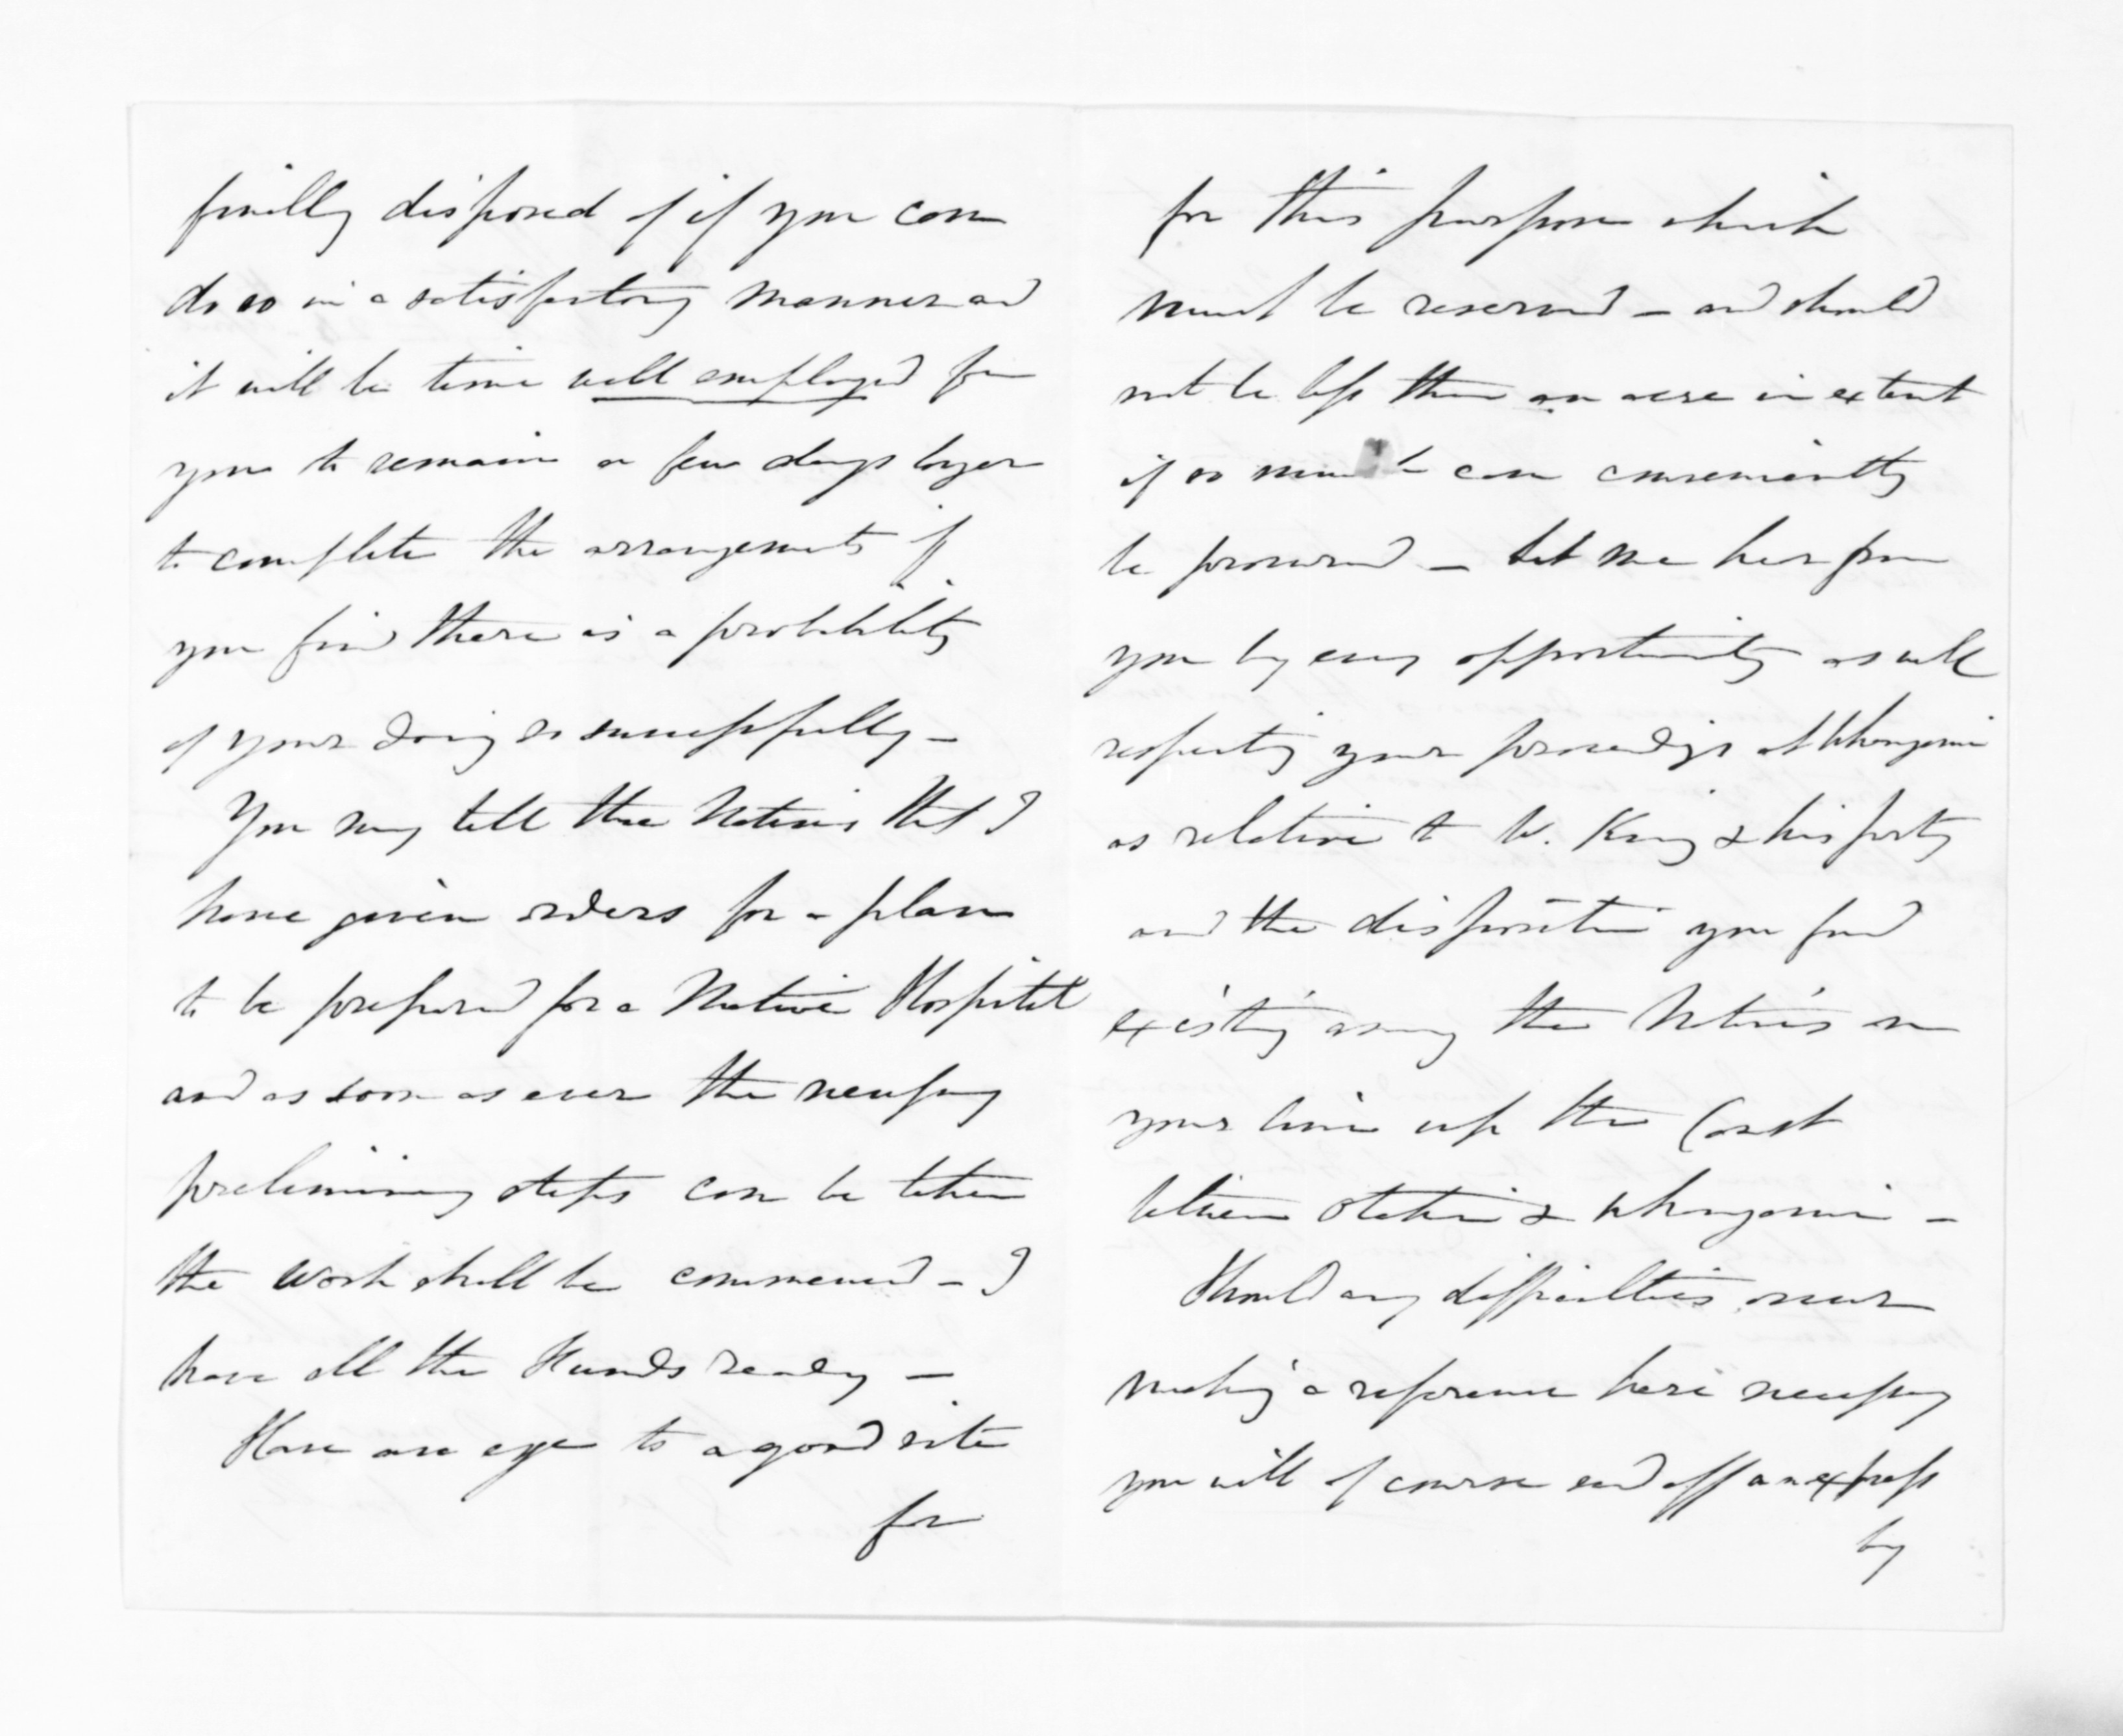 finally disposed of if you can
do so in a satisfactory manner and
it will be time well employed for
you to remain a few days longer
to complete the arrangements if
you find there is a probability
of your doing so successfully -
You may tell the Natives that I
have given orders for a plan
to be prepared for a Native Hospital
and as soon as ever the necessary
preliminary steps can be taken
the work shall be commenced - I
have all the Funds ready -
Have an eye to a good site
for
for this purpose which
must be reserved - and should
not be less than an acre in extent
if so much can conveniently
be procured - Let me hear from
you by every opportunity as well
respecting your proceedings at Whanganui
as relative to W. King & his party
and the disposition you find
existing among the Natives on
your line up the Coast
between Otaki & Whanganui -
Should any difficulties occur
making a reference here necessary
you will of course send off an express
by